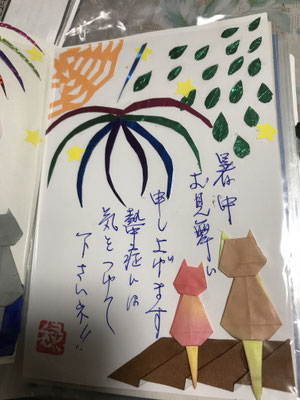 暑中
お見舞い
申し上げます
熱中症には
気をつけて
下さいネ!!
緑